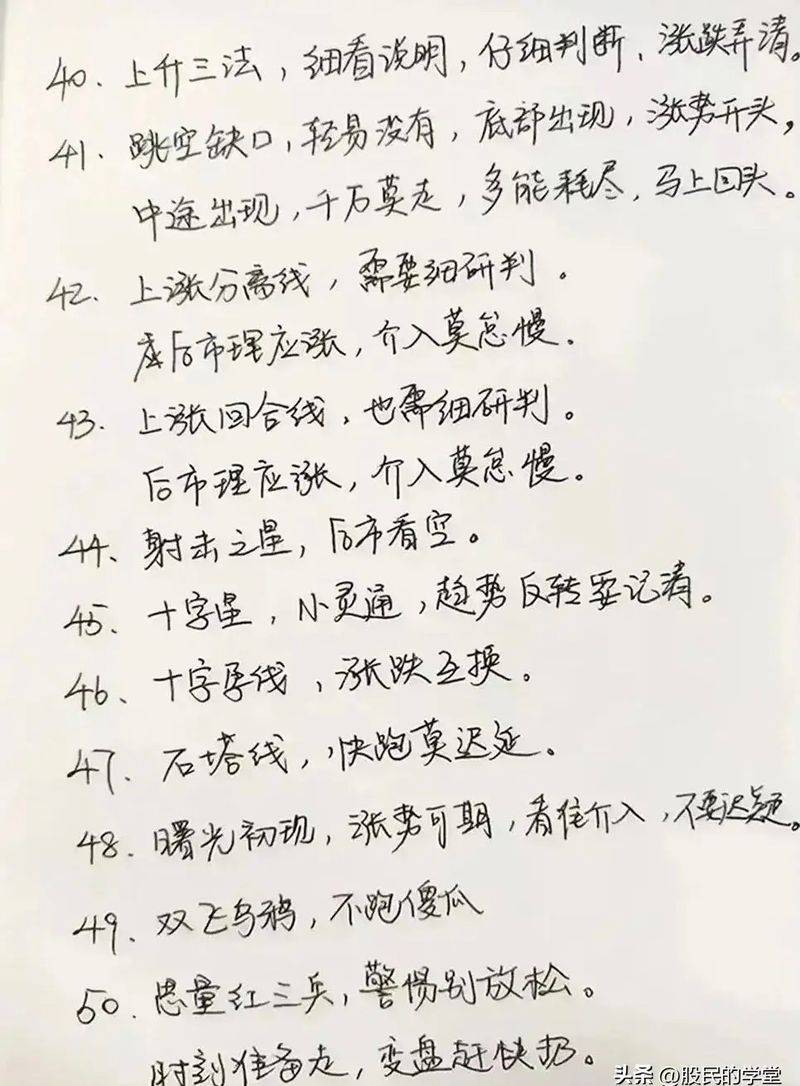 40、上升三法，细看说明，仔细判断，涨跌弄清。
41、跳空缺口，轻易没有，底部出现，涨势开头，
中途出现，千万莫走，多能耗尽，马上回头。
42、上涨分离线，需要细研判。
后市理应涨，介入莫怠慢。
43、上涨回合线，也需细研判。
后市理应涨，介入莫怠慢。
44、射击之星，后市看空。
45、十字星，小灵通，趋势反转要记清。
46、十字孕线，涨跌互换。
47、石塔线，快跑莫迟延。
48、曙光初现，涨势可期，看住介入，不要迟疑。
49、双飞乌鸦，不跑傻瓜
50、思量红三兵，警惕别放松。
时刻准备走，变盘赶快扔。
头条 @股民的学堂